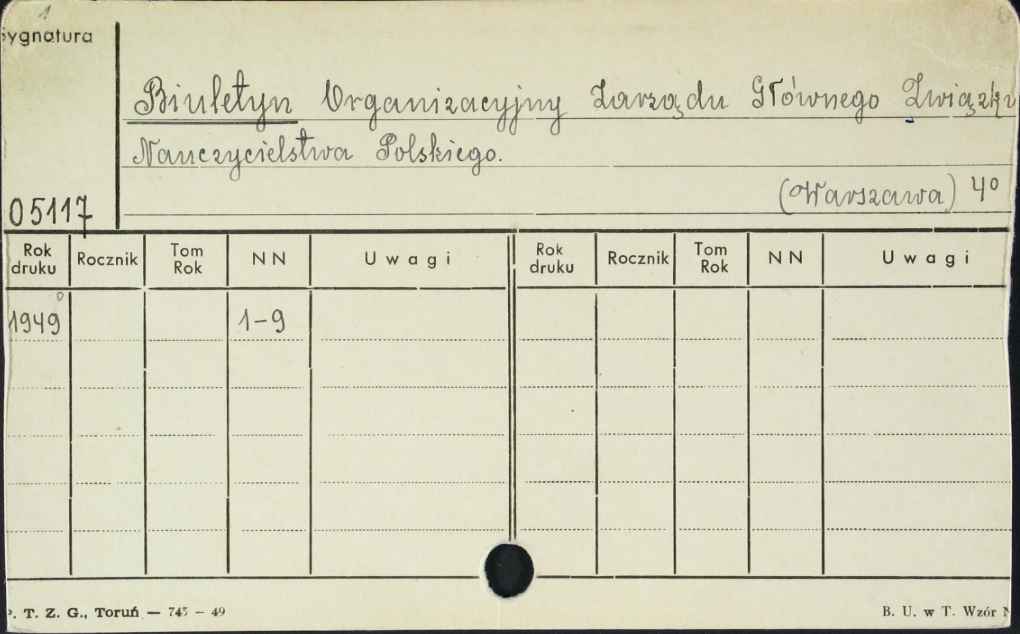 1
Sygnatura
Biuletyn Organizacyjny Zarządu Głównego Związku
Nauczycielstwa Polskiego.
(Warszawa) 4⁰
05117
Rok druku Rocznik Tom Rok NN Uwagi Rok druku Rocznik Tom Rok NN Uwagi
1949 1-9
P. T. Z. G., Toruń — 745 – 49 B. U. w T. Wzór